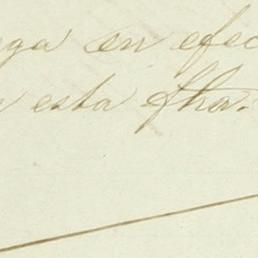 ga en efec
esta fha.